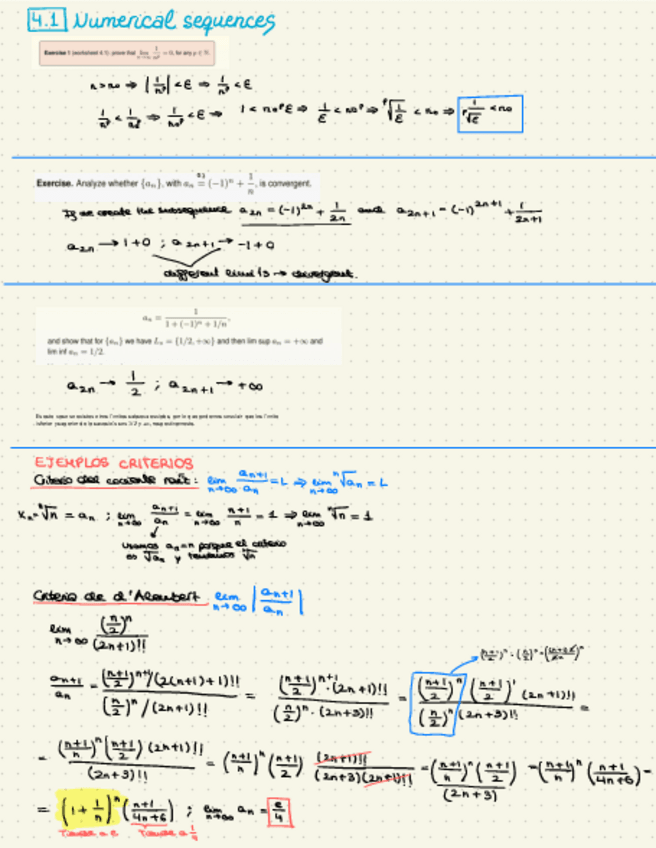 4.1 Numerical sequences
Exercise 1 (worksheet 4.1): prove that lim n→∞ 1/n^p = 0, for any p ∈ ℕ.
n > n₀ ⇒ |1/n^p| < ε ⇒ 1/n^p < ε
1/n^p < 1/n₀^p ⇒ 1/n₀^p < ε ⇒ 1 < n₀^p ε ⇒ 1/ε < n₀^p ⇒ ᵖ√(1/ε) < n₀ ⇒ 1/ᵖ√ε < n₀
Exercise. Analyze whether {aₙ}, with aₙ = (-1)ⁿ + 1/n, is convergent.
If we create the subsequence a₂ₙ = (-1)²ⁿ + 1/2n and a₂ₙ₊₁ = (-1)²ⁿ⁺¹ + 1/(2n+1)
a₂ₙ → 1+0 ; a₂ₙ₊₁ → -1+0
different limits → divergent.
aₙ = 1/(1 + (-1)ⁿ + 1/n),
and show that for {aₙ} we have Lₐ = {1/2, +∞} and then lim sup aₙ = +∞ and
lim inf aₙ = 1/2.
a₂ₙ → 1/2 ; a₂ₙ₊₁ → +∞
EJEMPLOS CRITERIOS
Criterio del cociente raíz: lim n→∞ aₙ₊₁/aₙ = L ⇒ lim n→∞ ⁿ√aₙ = L
xₙ = ⁿ√n = aₙ ; lim n→∞ aₙ₊₁/aₙ = lim n→∞ (n+1)/n = 1 ⇒ lim n→∞ ⁿ√n = 1
usamos aₙ = n porque el criterio
es ⁿ√aₙ y tenemos ⁿ√n
Criterio de d'Alembert lim n→∞ |aₙ₊₁/aₙ|
lim n→∞ (n/2)ⁿ/(2n+1)!!
aₙ₊₁/aₙ = ((n+1)/2)ⁿ⁺¹/(2(n+1)+1)!! / (n/2)ⁿ/(2n+1)!! = ((n+1)/2)ⁿ⁺¹·(2n+1)!! / (n/2)ⁿ·(2n+3)!! = ((n+1)/2)ⁿ ((n+1)/2)¹ (2n+1)!! / (n/2)ⁿ (2n+3)!! =
= ((n+1)/n)ⁿ ((n+1)/2) (2n+1)!! / (2n+3)!! = ((n+1)/n)ⁿ ((n+1)/2) (2n+1)!!/(2n+3)(2n+1)!! = ((n+1)/n)ⁿ ((n+1)/2) / (2n+3) = ((n+1)/n)ⁿ ((n+1)/(4n+6)) =
= (1 + 1/n)ⁿ ((n+1)/(4n+6)) ; lim n→∞ aₙ = e/4